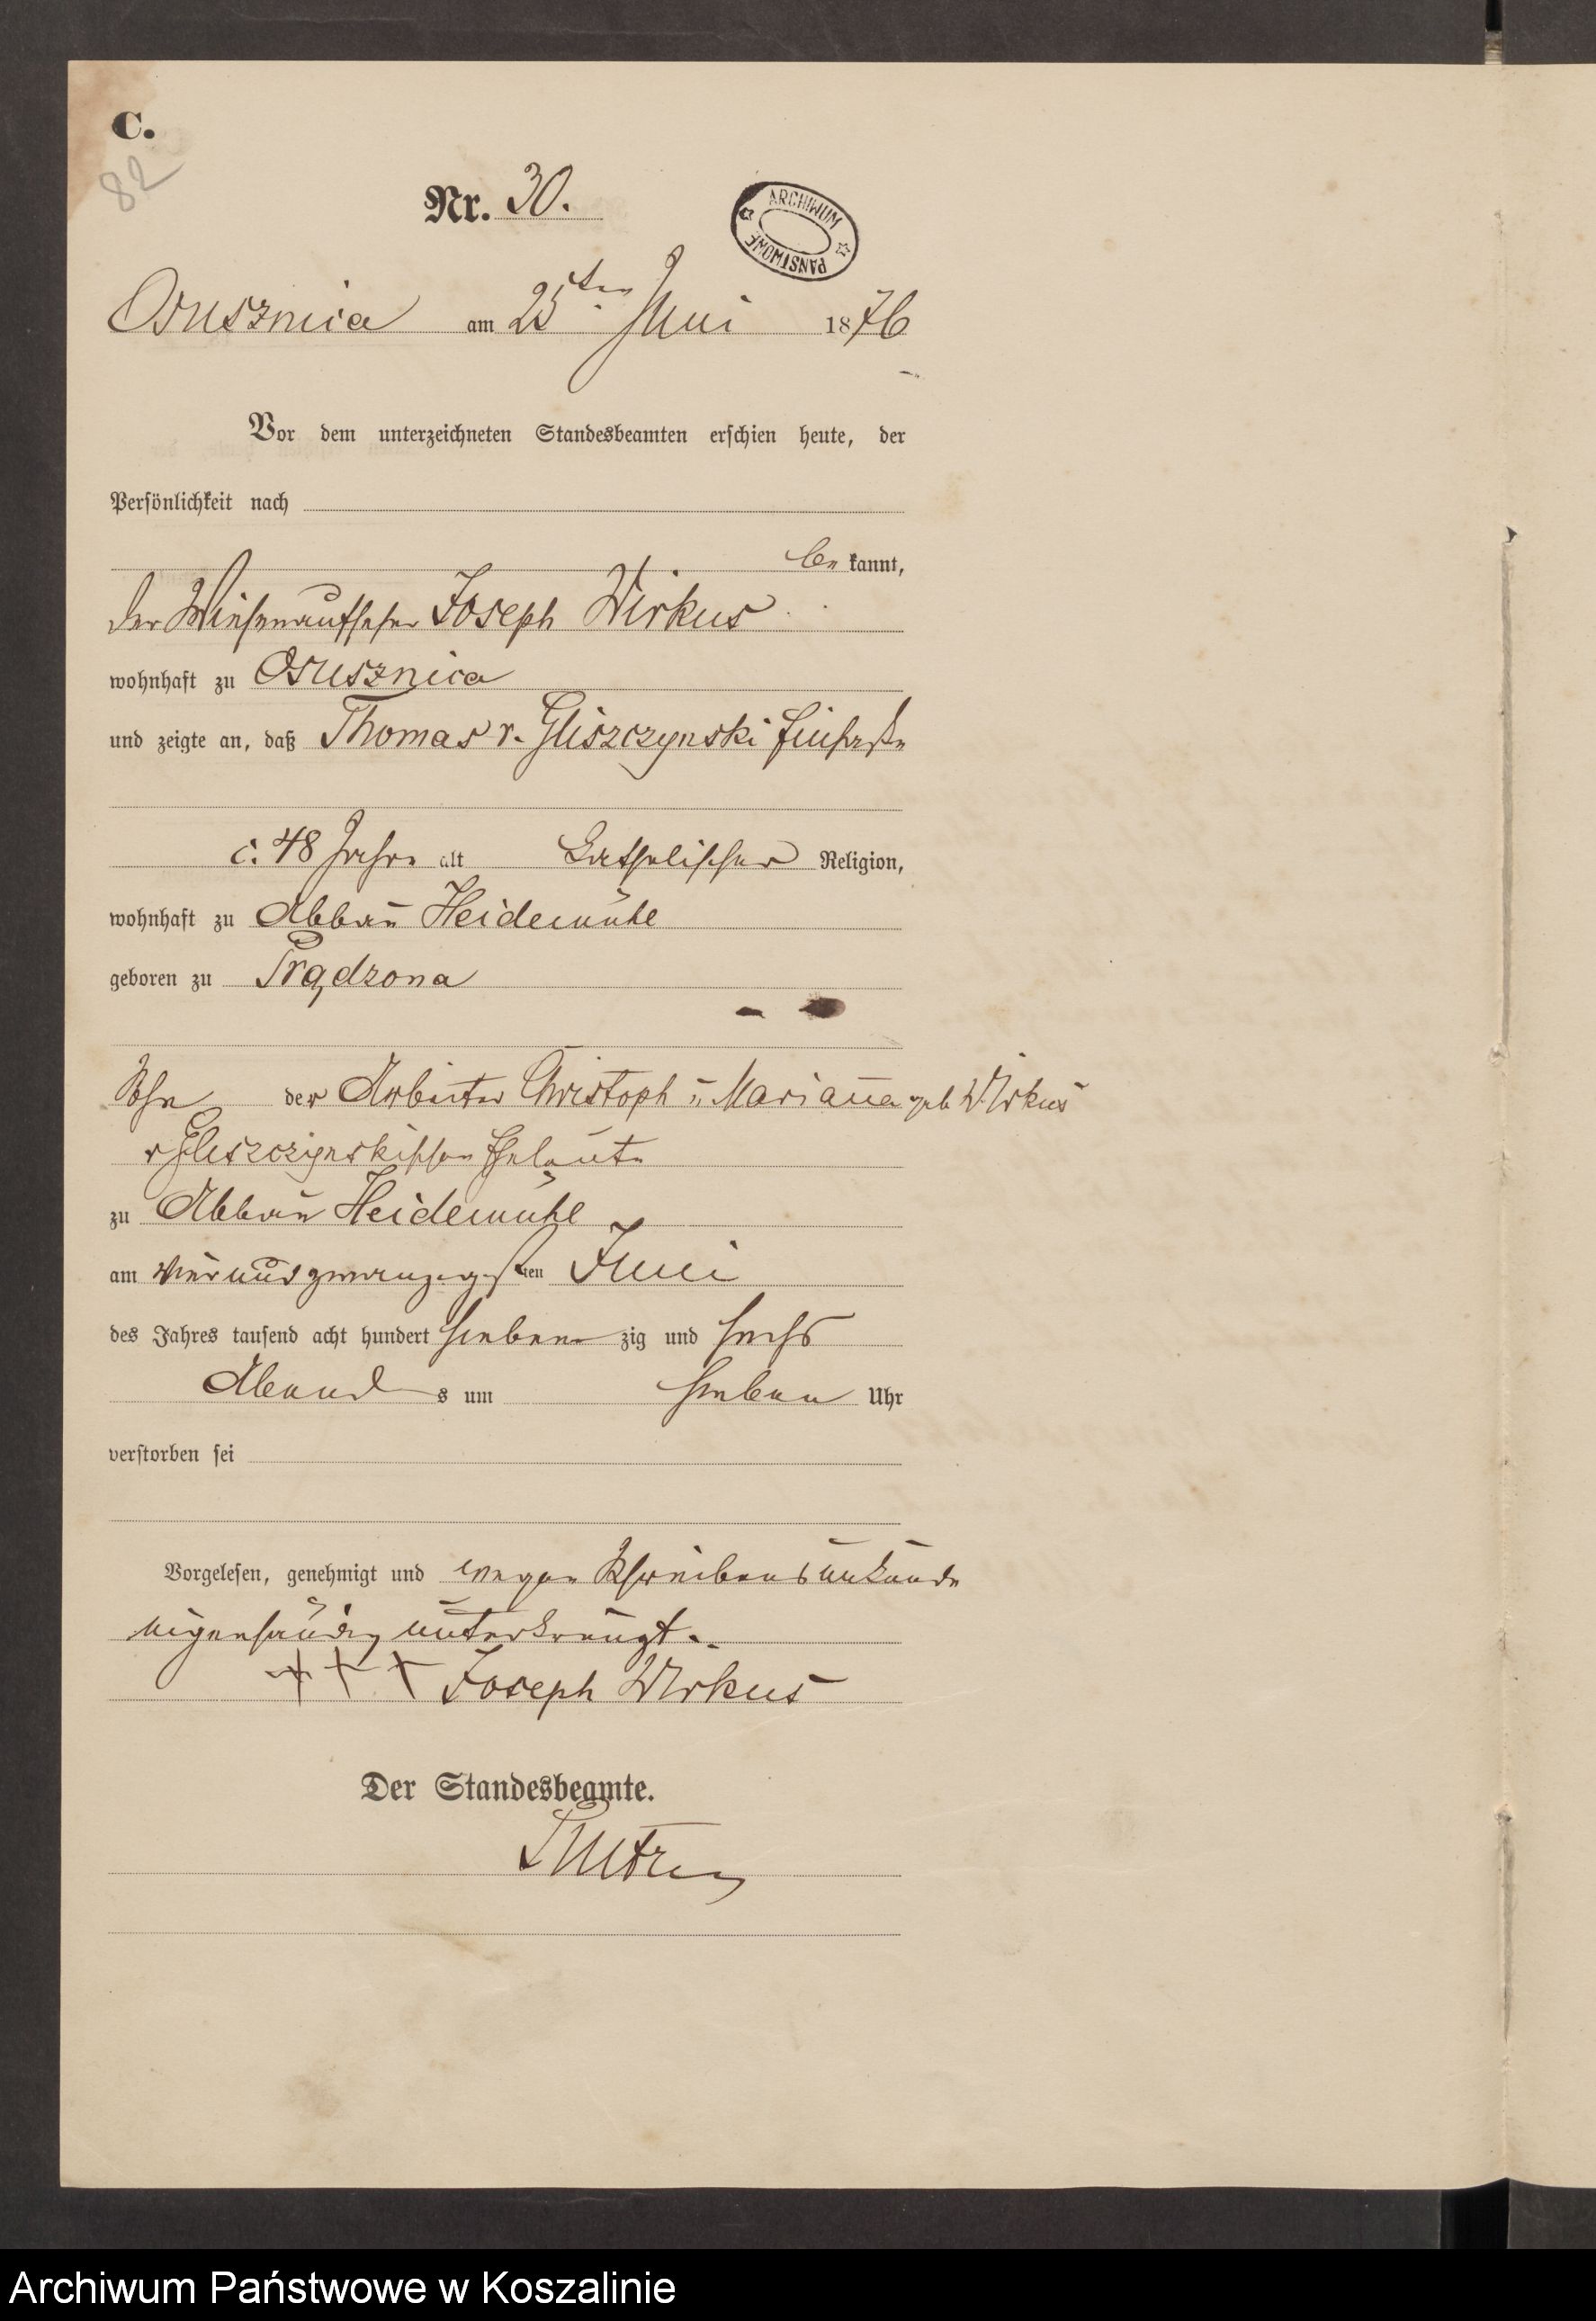 C.
82
Nr. 30.
ARCHIWUM
PAŃSTWOWE
Osusznica am 25ten Juni 1876
Vor dem unterzeichneten Standesbeamten erschien heute, der
Persönlichkeit nach
be kannt,
der Wiesenaufseher Joseph Wirkus
wohnhaft zu Osusznica
und zeigte an, daß Thomas v. Gliszczynski
c. 48 Jahre alt Katholischer Religion,
wohnhaft zu Abbau Heidemühl
geboren zu Prądzona
Sohn der Arbeiter Christoph u. Mariana geb Wirkus
v Gliszczynskischen Eheleute
zu Abbau Heidemühl
am vierundzwanzigsten Juni
des Jahres tausend acht hundert sieben zig und sechs
Abend s um sieben Uhr
verstorben sei
Vorgelesen, genehmigt und wegen Schreibensunkunde
eigenhändig unterkreuzt.
+ + + Joseph Wirkus
Der Standesbeamte.
Archiwum Państwowe w Koszalinie